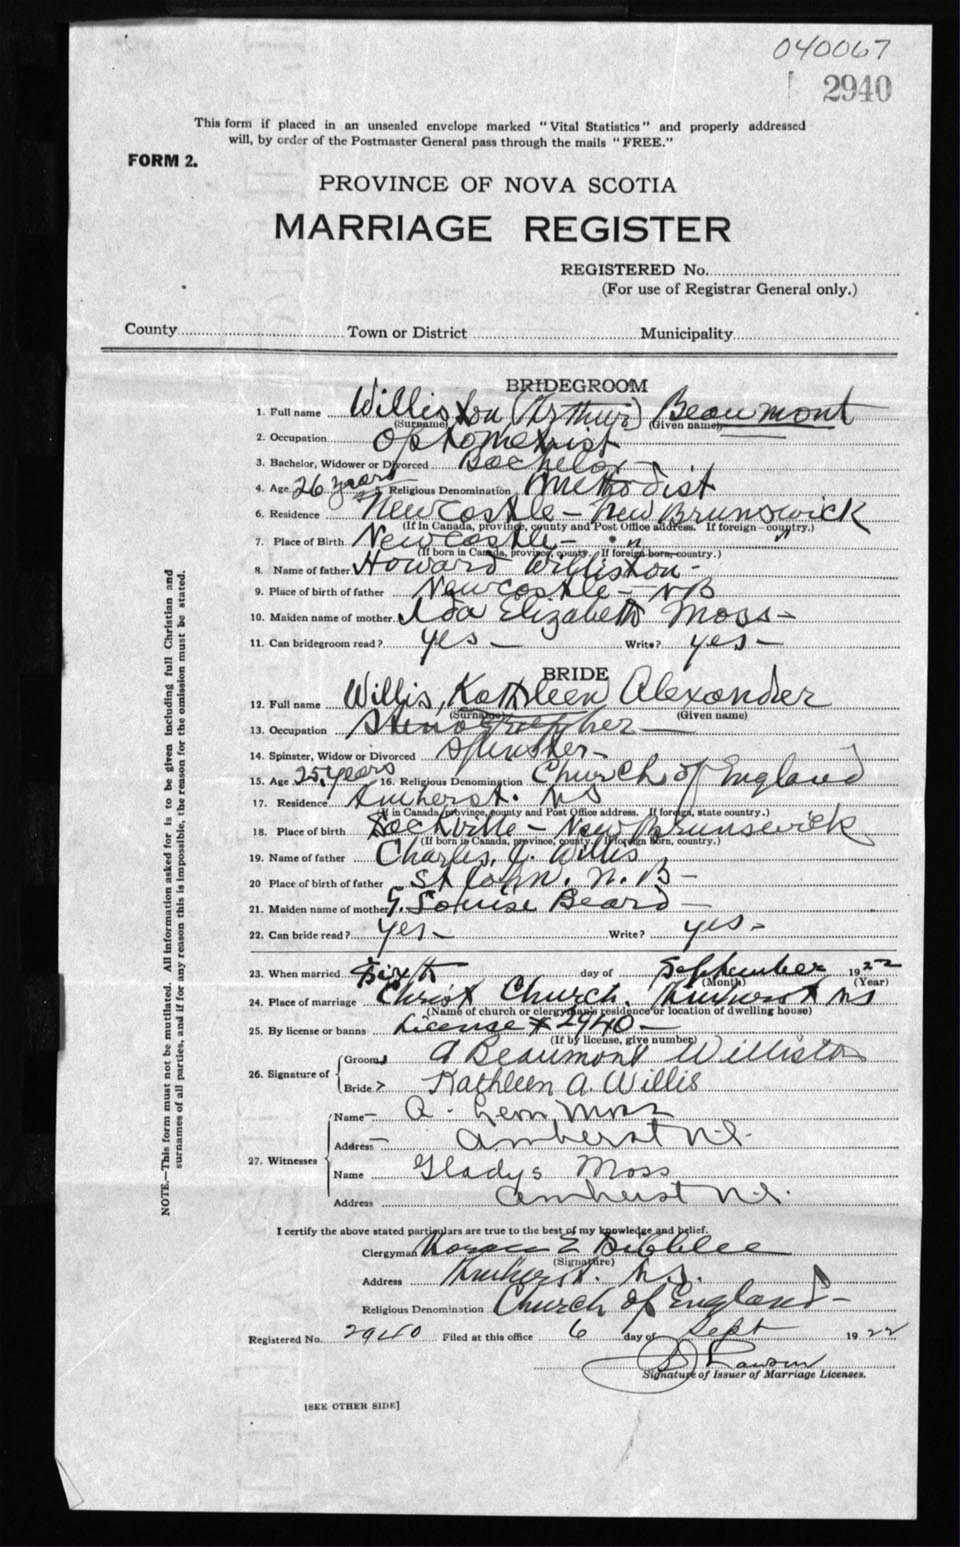 040067
2940
This form if placed in an unsealed envelope marked "Vital Statistics" and properly addressed
will, by order of the Postmaster General pass through the mails "FREE."
FORM 2.
PROVINCE OF NOVA SCOTIA
MARRIAGE REGISTER
REGISTERED No.
(For use of Registrar General only.)
County Town or District Municipality
BRIDEGROOM
1. Full name Williston (Arthur) Beaumont
(Surname) (Given name)
2. Occupation Optometrist
3. Bachelor, Widower or Divorced Bachelor
4. Age 26 years 5. Religious Denomination Methodist
6. Residence Newcastle - New Brunswick
(If in Canada, province, county and Post Office address. If foreign country.)
7. Place of Birth Newcastle - " "
(If born in Canada, province, county. If foreign born, country.)
8. Name of father Howard Williston -
9. Place of birth of father Newcastle - NB
10. Maiden name of mother Ida Elizabeth Moss -
11. Can bridegroom read? yes - Write? yes -
BRIDE
12. Full name Willis, Kathleen Alexander
(Surname) (Given name)
13. Occupation Stenographer -
14. Spinster, Widow or Divorced Spinster -
15. Age 25 years 16. Religious Denomination Church of England
17. Residence Amherst. NS
(If in Canada, province, county and Post Office address. If foreign, state country.)
18. Place of birth Sackville - New Brunswick
(If born in Canada, province, county. If foreign born, country.)
19. Name of father Charles. J. Willis
20 Place of birth of father St John. N. B -
21. Maiden name of mother G. Louise Beard -
22. Can bride read? yes - Write? yes -
23. When married Sixth day of September 1922
(Month) (Year)
24. Place of marriage Christ Church, Amherst NS
(Name of church or clergyman's residence or location of dwelling house)
25. By license or banns License # 2940 -
(If by license, give number)
26. Signature of { Groom A Beaumont Williston
Bride Kathleen A. Willis
27. Witnesses { Name A. Leon Moss
Address Amherst N.S.
Name Gladys Moss
Address Amherst N.S.
I certify the above stated particulars are true to the best of my knowledge and belief.
Clergyman Horace E Dibblee
(Signature)
Address Amherst. N.S.
Religious Denomination Church of England -
Registered No. 2940 Filed at this office 6 day of Sept 1922
Signature of Issuer of Marriage Licenses.
[SEE OTHER SIDE]
NOTE.—This form must not be mutilated. All information asked for is to be given including full Christian and
surnames of all parties, and if for any reason this is impossible, the reason for the omission must be stated.